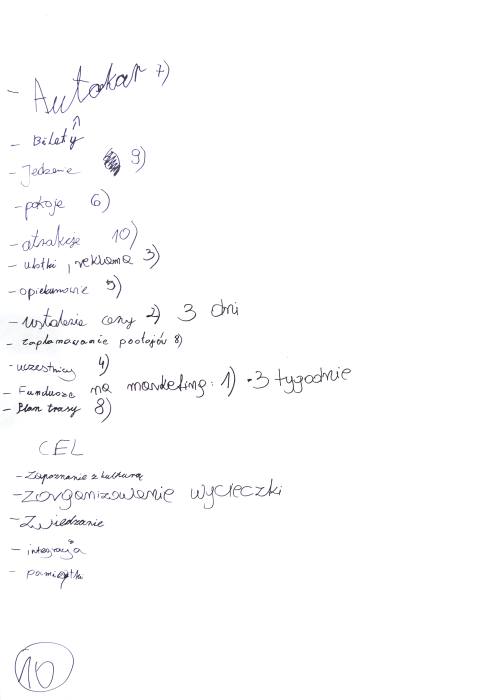 - Autokar 7)
- Bilety
- Jedzenie 9)
- pokoje 6)
- atrakcje 10)
- ulotki, reklama 3)
- opiekunowie 5)
- ustalenie ceny 2) 3 dni
- zaplanowanie postojów 8)
- uczestnicy 4)
- Fundusze na marketing: 1) • 3 tygodnie
- Plan trasy 8)
CEL
- Zapoznanie z kulturą
- zorganizowanie wycieczki
- Zwiedzanie
- integracja
- pamiątki
10